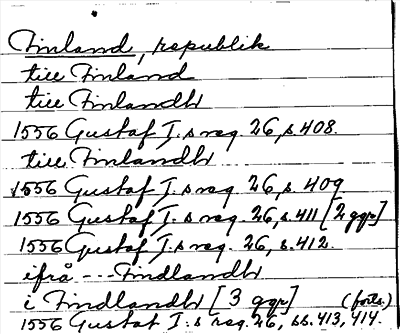 Finland, republik
till Finland
till Finlandh
1556 Gustaf I:s reg. 26, s. 408.
till Finlandh
1556 Gustaf I:s reg. 26, s. 409
1556 Gustaf I:s reg. 26, s. 411 [2 ggr]
1556 Gustaf I:s reg. 26, s. 412.
ifrå --- Findlandh
i Findlandh [3 ggr] (forts.)
1556 Gustaf I:s reg. 26, ss. 413, 414.